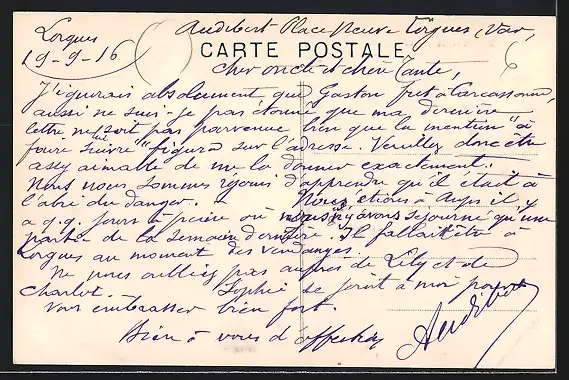 Lorgues
19-9-16
Audibert Place Neuve Lorgues, Var,
CARTE POSTALE
6
Cher oncle et chère Tante,
J'ignorais absolument que Gaston fut à Carcassonne,
aussi ne suis-je pas étonné que ma dernière
lettre ne lui soit pas parvenue bien que la mention "à
faire suivre" figura sur l'adresse. Veuillez donc être
assez aimable de me la donner exactement.
Nous nous sommes réjouis d'apprendre qu'il était à
l'abri du danger. Nous étions à Aups il y
a q.q. jours à peine où nous n'y avons séjourné qu'une
partie de la semaine dernière. Il fallait être à
Lorgues au moment des vendanges.
Ne nous oubliez pas auprès de Lily et de
Charlot. Sophie se joint à moi pour
vous embrasser bien fort.
Bien à vous d'affection
Audibert